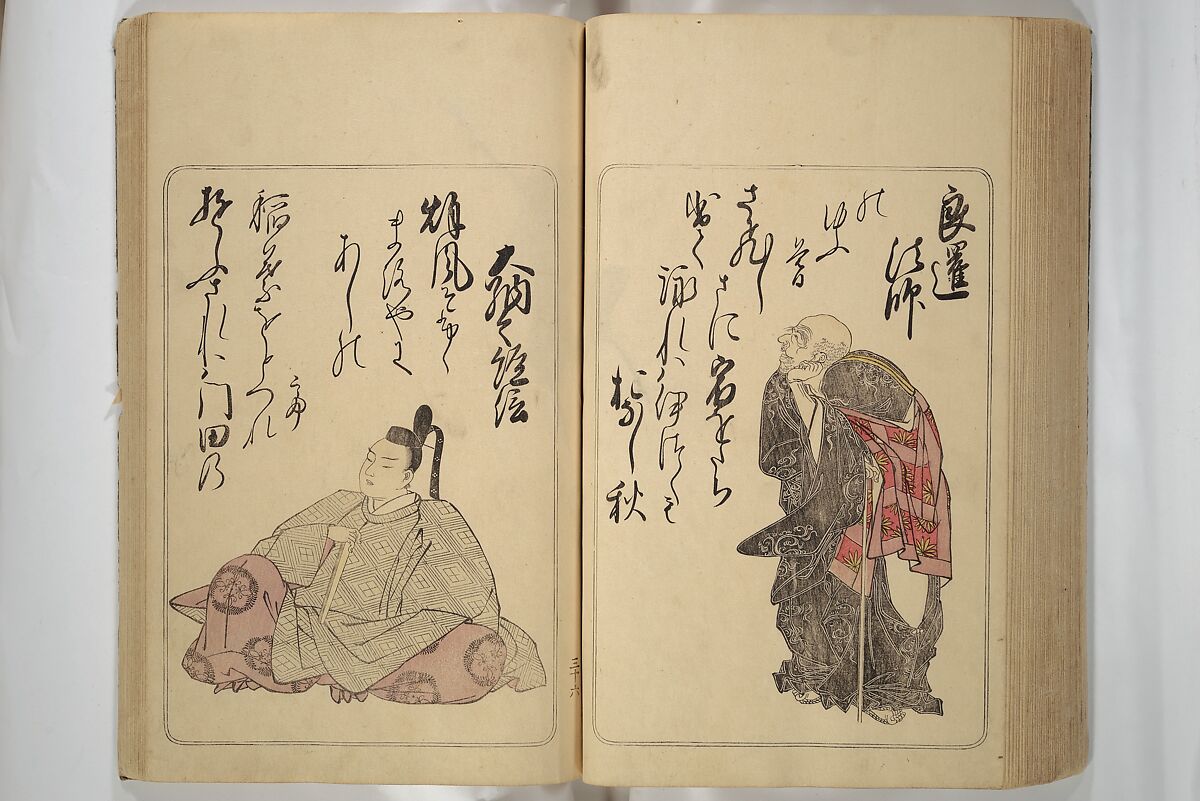 良暹
法師
さひし
さに宿をたち
出て
詠れはいつこも
おなし秋
の
ゆふ
暮
大納言経信
ゆふされは門田の
稲葉をとつれ
て
あしの
まろやに
秋風そ吹く
三十六